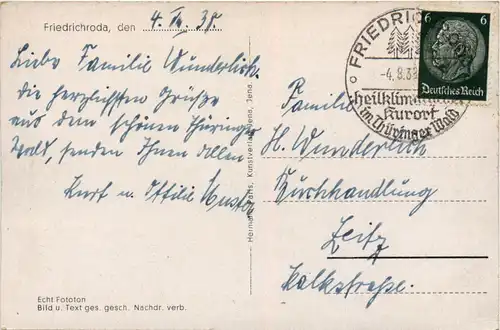 Friedrichroda, den 4. 38.
Liebe Familie Wunderlich.
die herzlichsten Grüße
aus dem schönen Thüringer
Wald, senden Ihnen allen
Kurt u. Ottilie
Echt Fototon
Bild u. Text ges. gesch. Nachdr. verb.
Kunstverlag Jena.
FRIEDRICH
-4.8.38
heilklimatischer
Kurort
im Thüringer Wald
6 6
Deutsches Reich
Familie
H. Wunderlich
Buchhandlung
Zeitz
Kalkstraße.